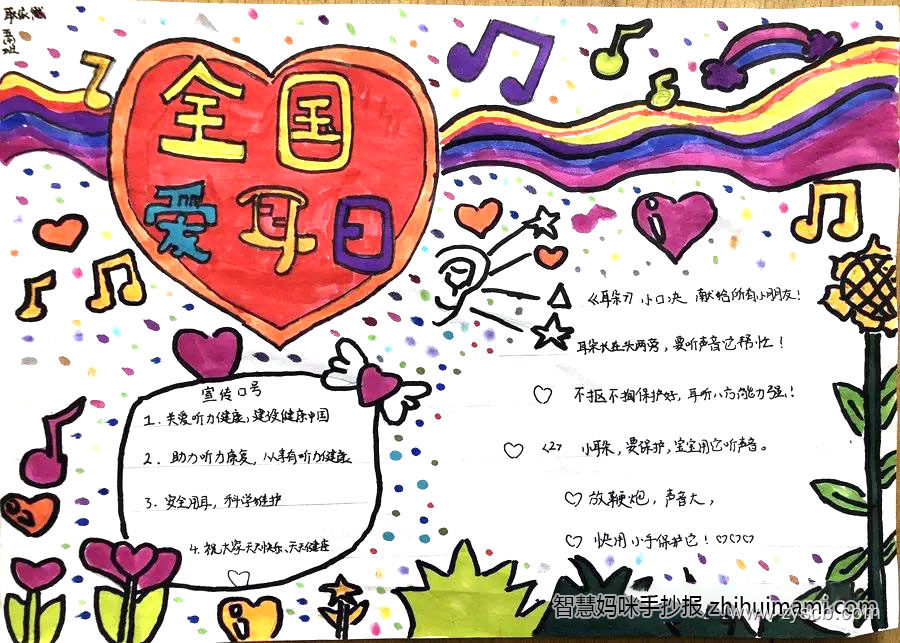 全国
爱耳日
宣传口号
1. 关爱听力健康，建设健康中国
2. 助力听力康复，以享有听力健康
3. 安全用耳，科学维护
4. 祝大家天天快乐、天天健康
《耳朵》小口决 献给所有小朋友！
耳朵长在头两旁，要听声音它帮忙！
不抠不掏保护好，耳听八方能力强！
<2> 小耳朵，要保护，宝宝用它听声音。
放鞭炮，声音大，
快用小手保护它！
智慧妈咪手抄报 zhihuimami.com